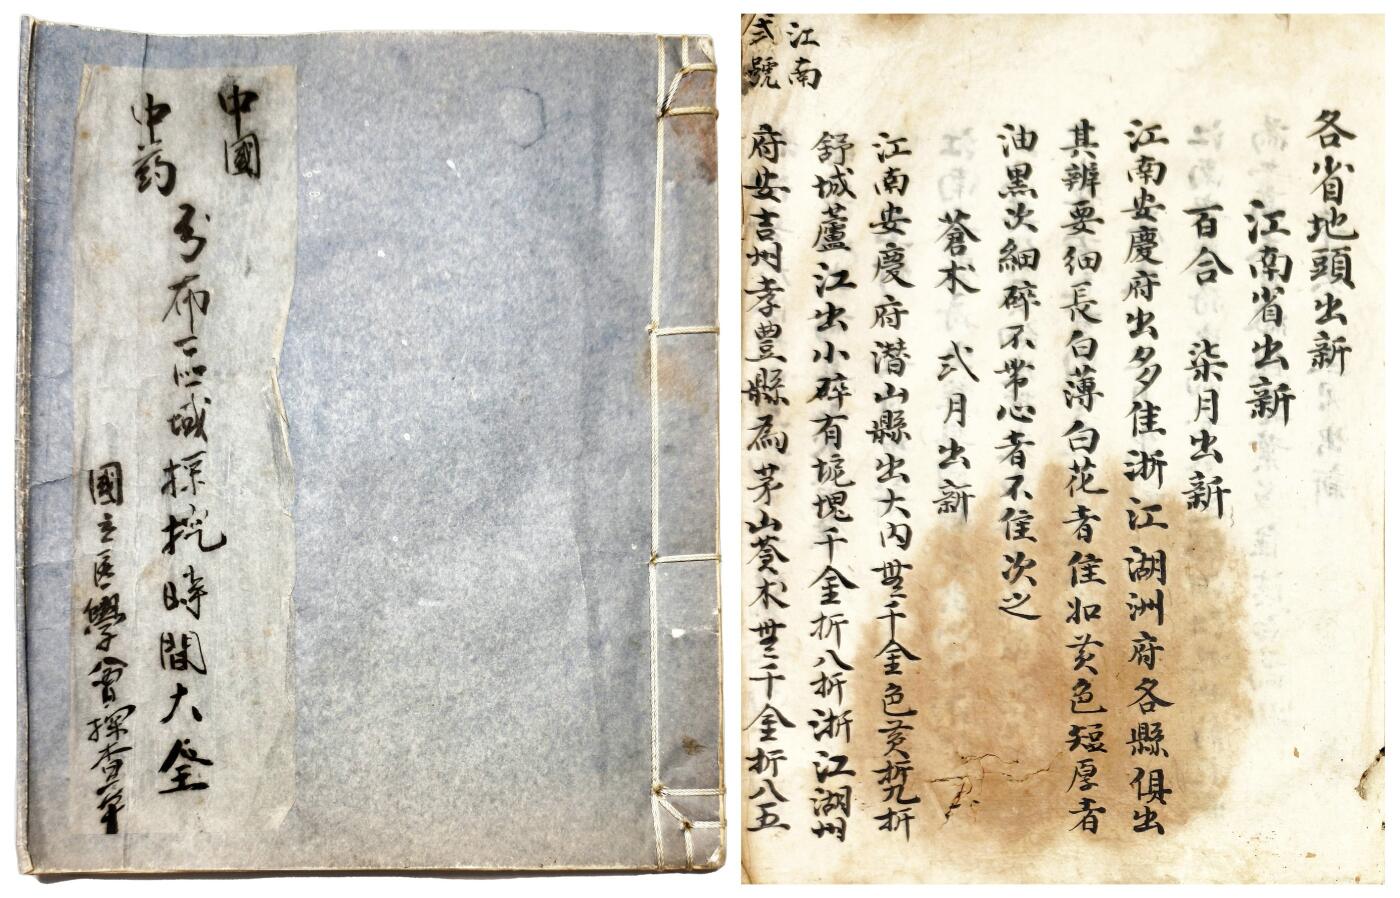 中國
中药
分布区域採挖時間大全
國立医學會探查草
江南
弍號
各省地頭出新
江南省出新
百合 柒月出新
江南安慶府出多佳浙江湖洲府各縣俱出
其辨要细長白薄白花者佳如黄色短厚者
油黑次細碎不帶心者不佳次之
蒼术 弍月出新
江南安慶府潜山縣出大内丗千金色黄折九折
舒城蘆江出小碎有垝塊千金折八折浙江湖州
府安吉州孝豊縣為茅山蒼术丗千金折八五